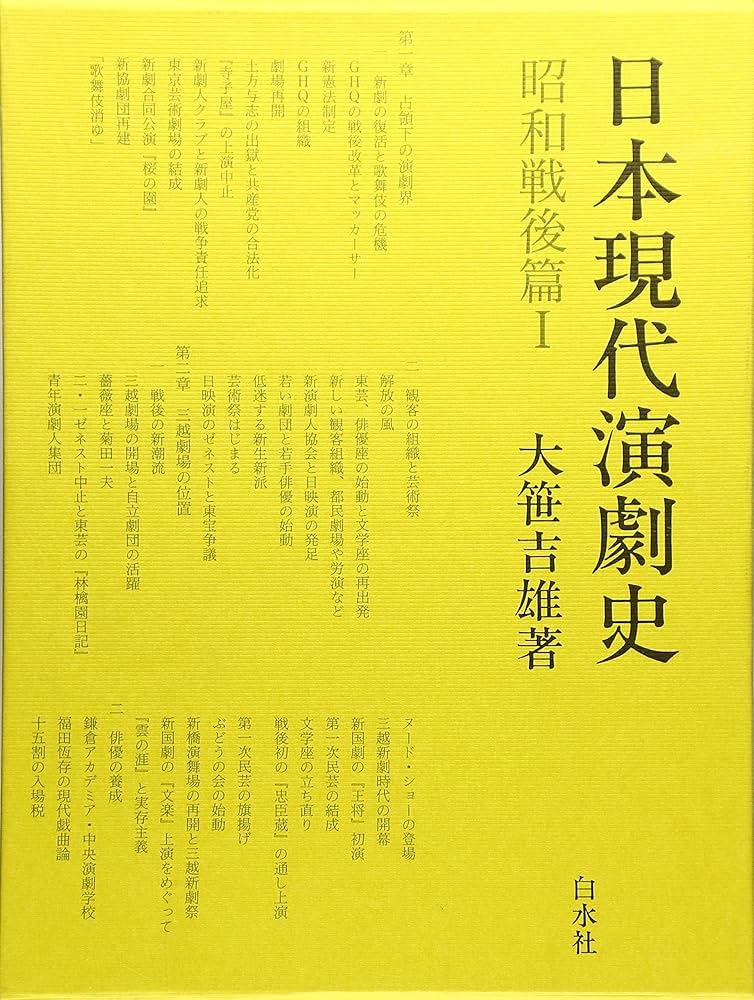 日本現代演劇史
昭和戦後篇Ⅰ
大笹吉雄著
白水社
第一章　占領下の演劇界
一　新劇の復活と歌舞伎の危機
GHQの戦後改革とマッカーサー
新憲法制定
GHQの組織
劇場再開
土方与志の出獄と共産党の合法化
『寺子屋』の上演中止
新劇人クラブと新劇人の戦争責任追求
東京芸術劇場の結成
新劇合同公演『桜の園』
新協劇団再建
「歌舞伎消ゆ」
二　観客の組織と芸術祭
解放の風
東芸、俳優座の始動と文学座の再出発
新しい観客組織、都民劇場や労演など
新演劇人協会と日映演の発足
若い劇団と若手俳優の始動
低迷する新生新派
芸術祭はじまる
日映演のゼネストと東宝争議
第二章　三越劇場の位置
一　戦後の新潮流
三越劇場の開場と自立劇団の活躍
薔薇座と菊田一夫
二・一ゼネスト中止と東芸の『林檎園日記』
青年演劇人集団
ヌード・ショーの登場
三越新劇時代の開幕
新国劇の『王将』初演
第一次民芸の結成
文学座の立ち直り
戦後初の『忠臣蔵』の通し上演
第一次民芸の旗揚げ
ぶどうの会の始動
新橋演舞場の再開と三越新劇祭
新国劇の『文楽』上演をめぐって
『雲の涯』と実存主義
二　俳優の養成
鎌倉アカデミア・中央演劇学校
福田恆存の現代戯曲論
十五割の入場税